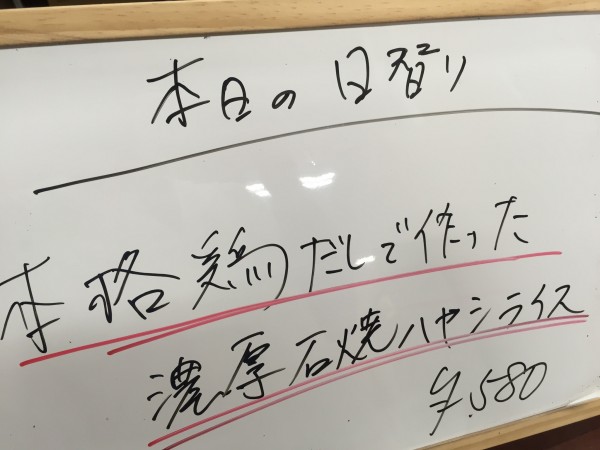 本日の日替り
本格鶏だしで作った
濃厚石焼ハヤシライス
¥.580